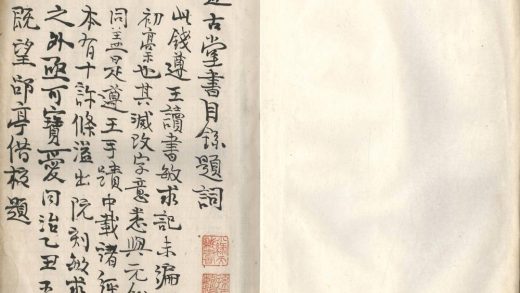 古堂書目錄題詞
此錢遵王讀書敏求記未編
初稾也其減改字意悉與元
同蓋是遵王手蹟中載諸
本有十許條溢出阮刻敏求
之外亟可寶愛同治乙丑五
既望郘亭借校題